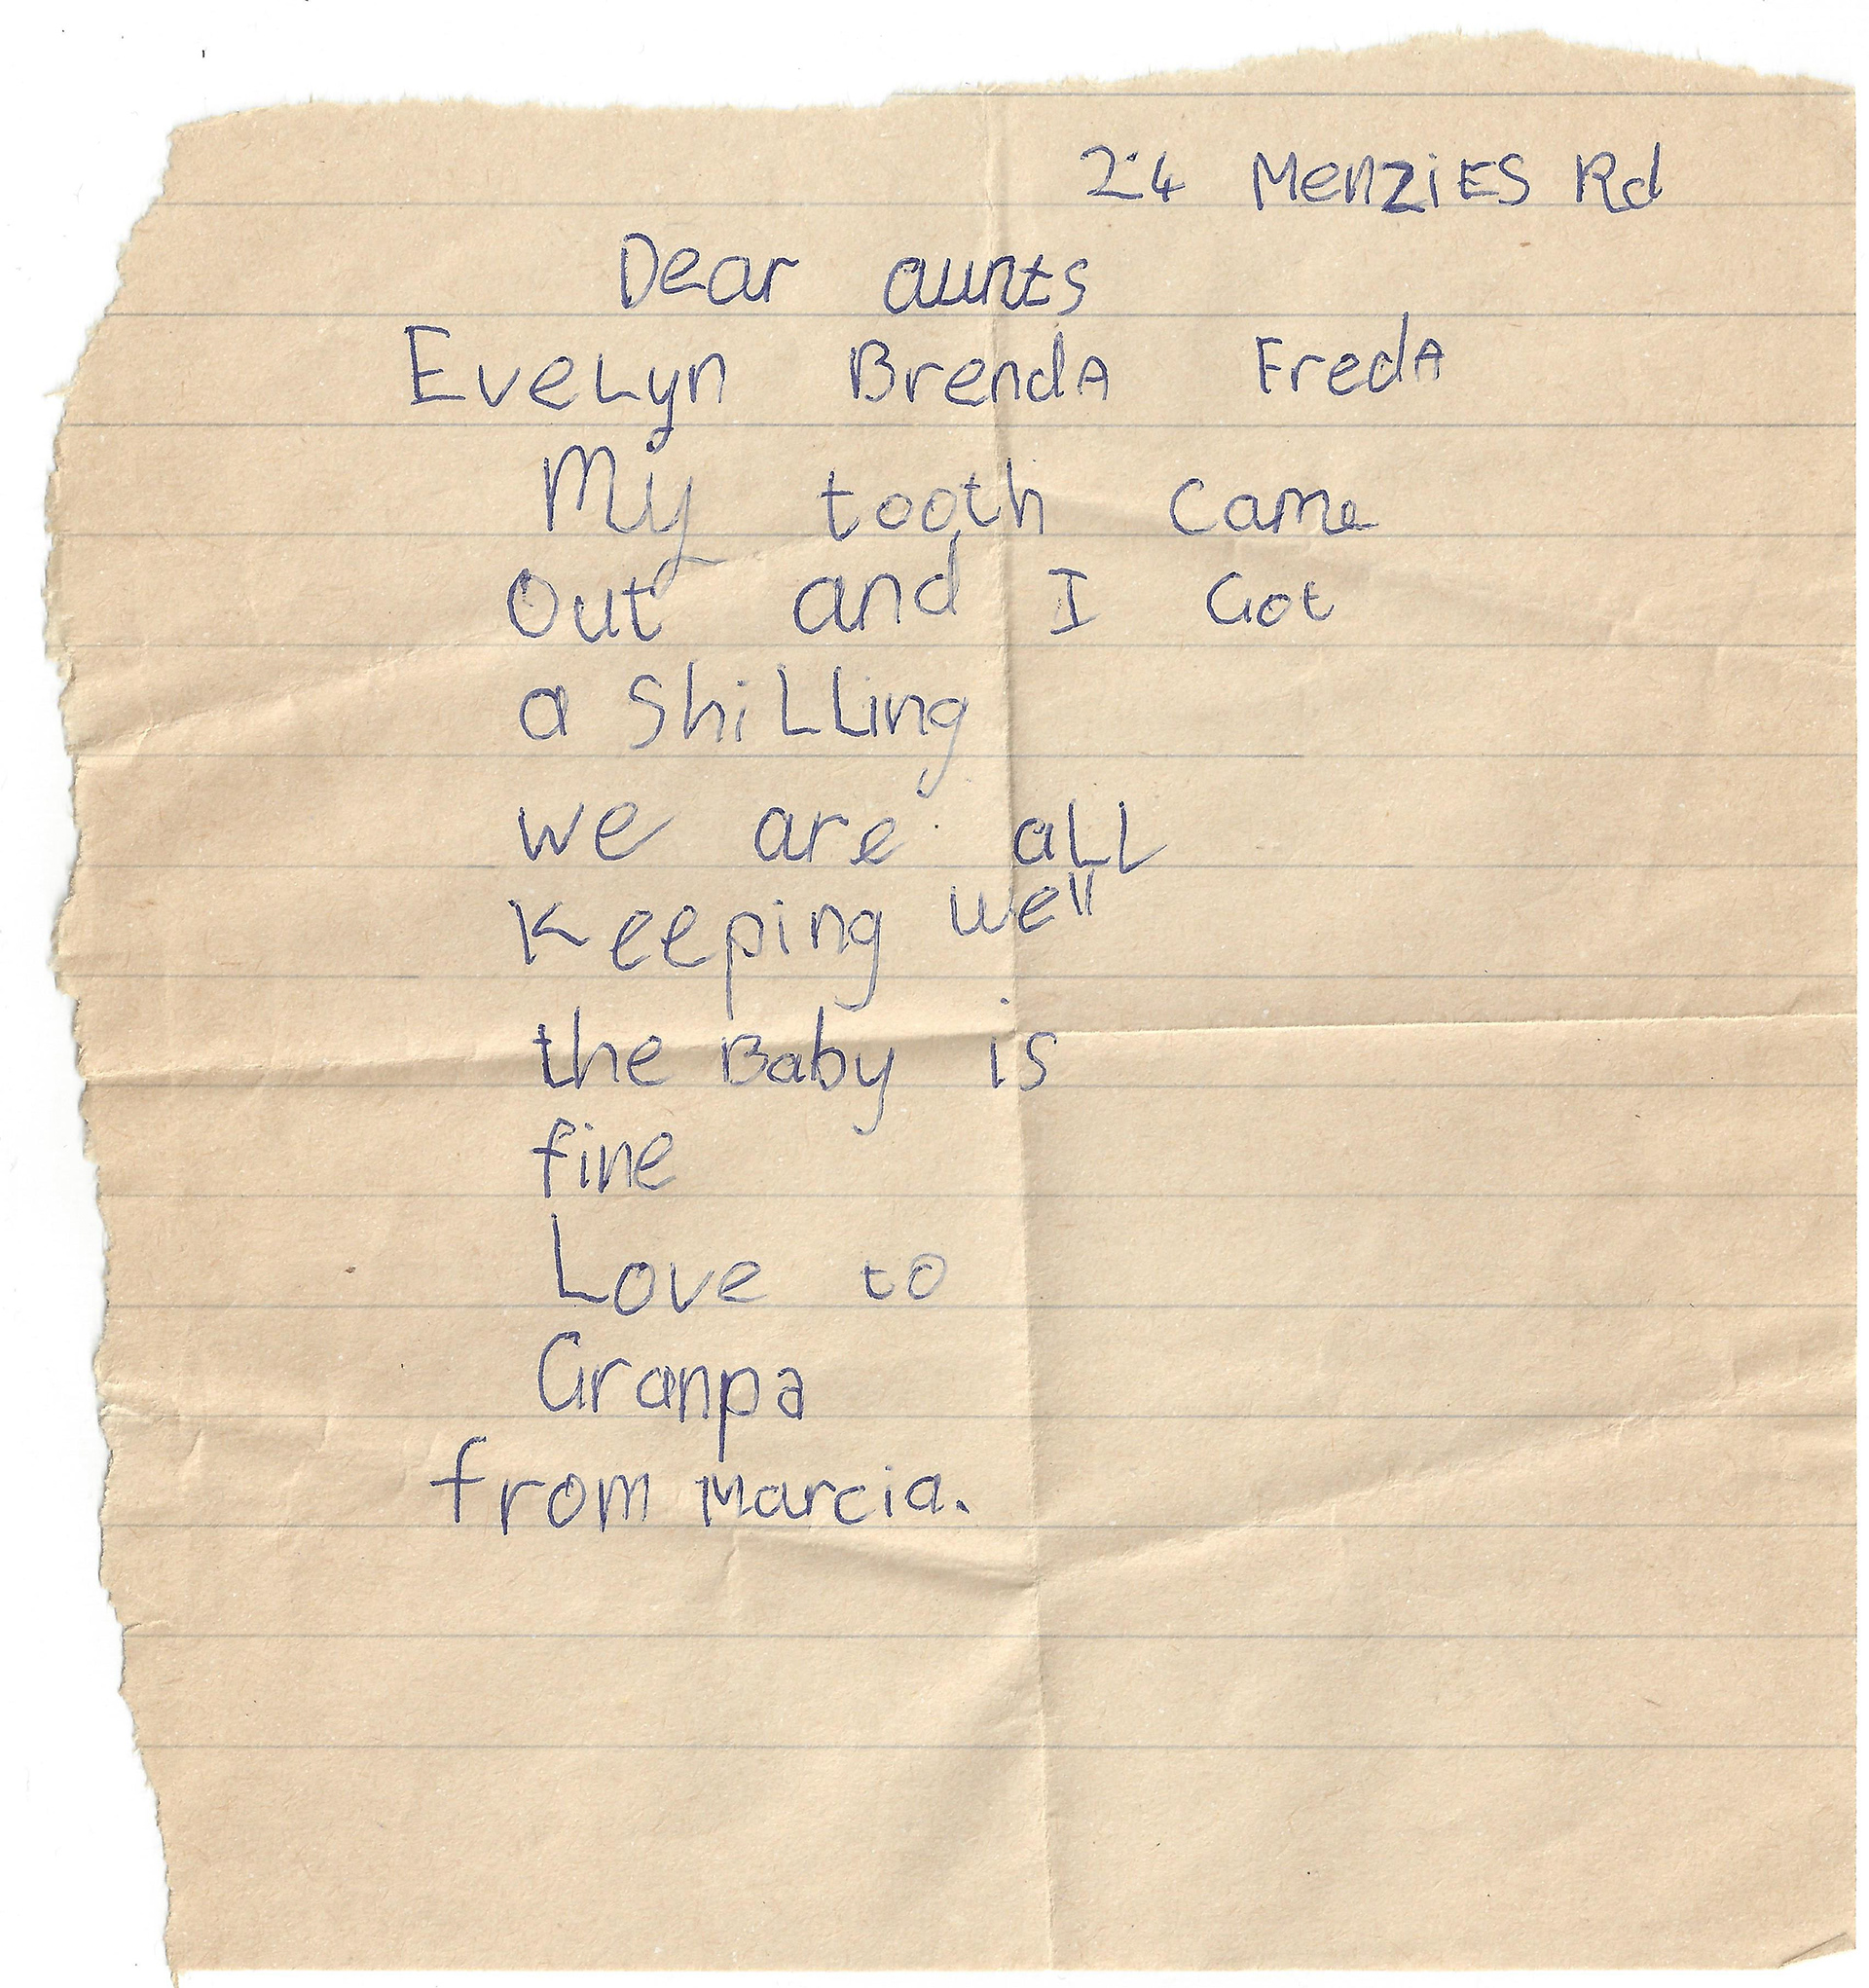 24 MenziES Rd
Dear aunts
EveLyn BrendA FredA
My tooth came
Out and I Got
a ShiLLing
we are aLL
Keeping well
the Baby is
fine
Love to
Granpa
from Marcia.